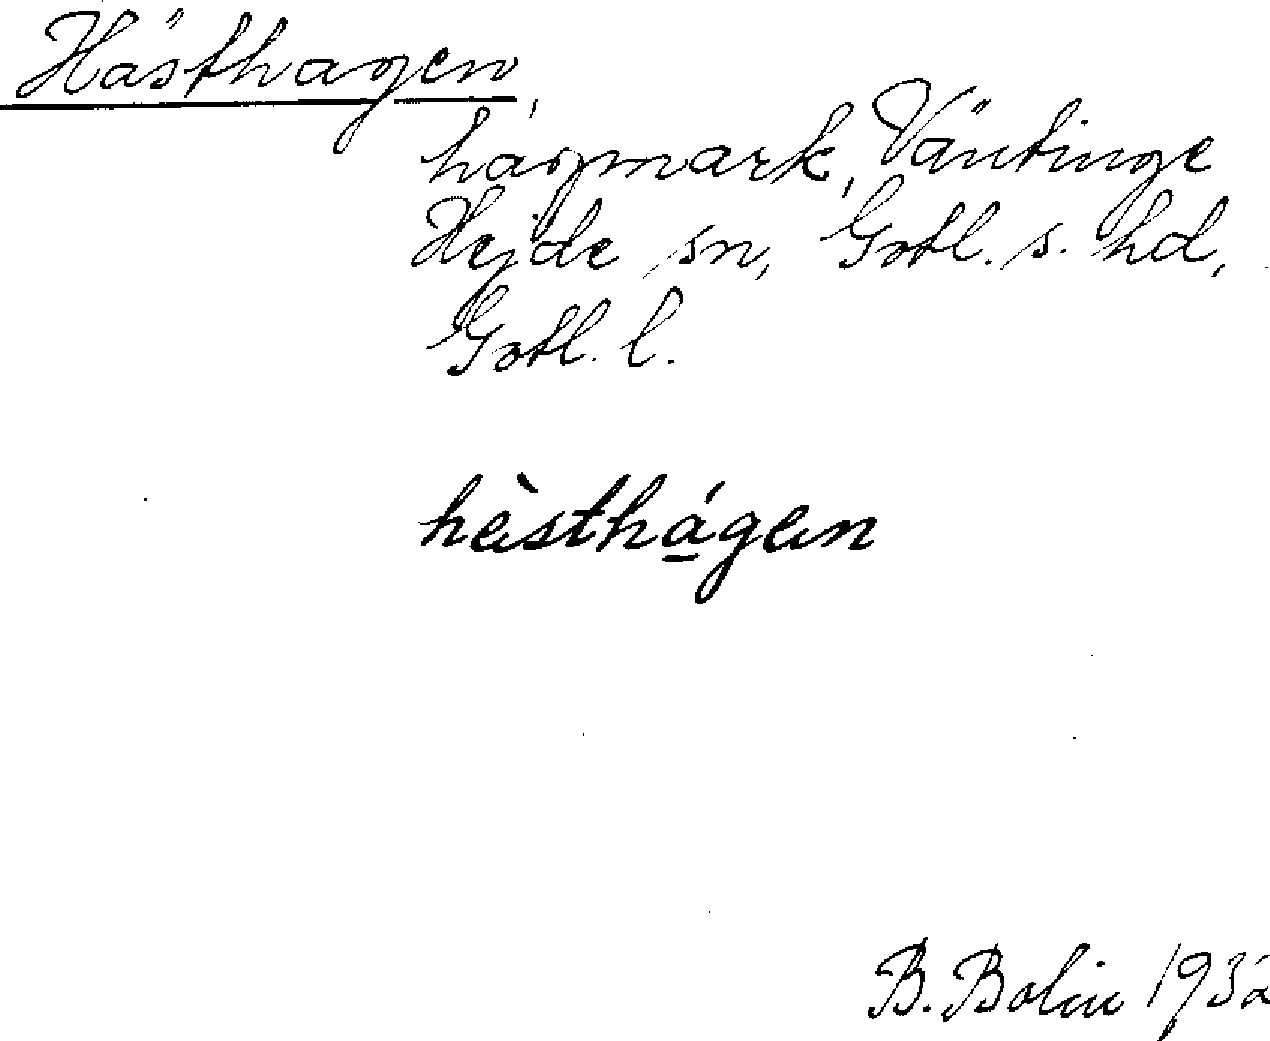 Hästhagen,
hagmark, Väntinge
Hejde sn, Gotl. s. hd,
Gotl. l.
hèsthágen
B. Bolin 1932